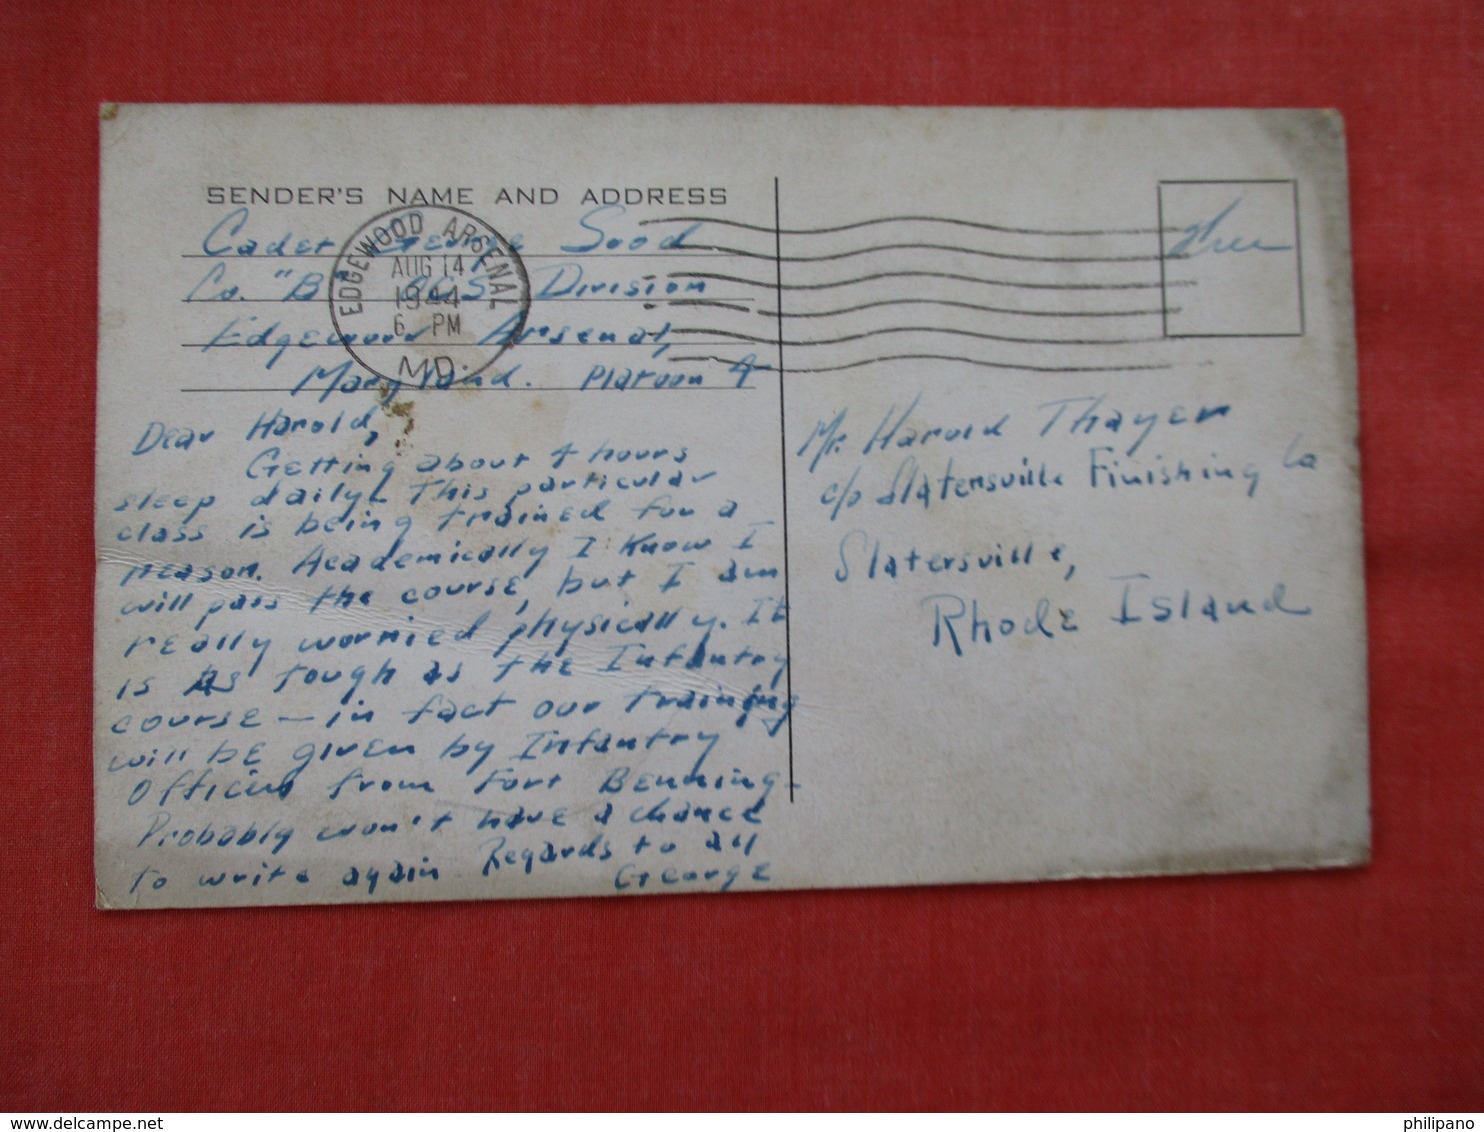 SENDER'S NAME AND ADDRESS
Cadet George Sood
Co. "B" OCS Division
Edgewood Arsenal,
Maryland. Platoon 4
EDGEWOOD ARSENAL
AUG 14
1944
6 PM
MD.
Free
Dear Harold,
Getting about 4 hours
sleep daily. This particular
class is being trained for a
reason. Academically I know I
will pass the course, but I am
really worried physically. It
is as tough as the Infantry
course — in fact our training
will be given by Infantry
Officers from Fort Benning.
Probably won't have a chance
to write again. Regards to all
George
Mr. Harold Thayer
c/o Slatersville Finishing Co
Slatersville,
Rhode Island
philipano